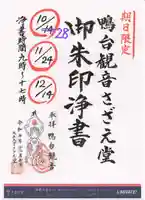 期日限定
鴨台観音さざえ堂
御朱印浄書
10/14
28
11/24
12/14
浄書時間九時〜十七時
奉拝 鴨台観音